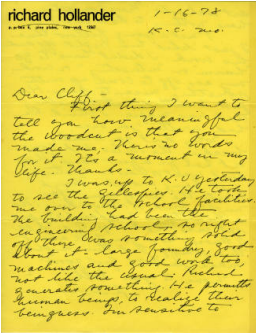 richard hollander
1-16-78
K.C. Mo.
Dear Cliff-
First thing I want to
tell you how meaningful
the woodcut is that you
made me. Theres no words
for it. Its a moment in my
life. Thanks.
I was up to K.U yesterday
to see the Gillespies. He took
me over to the school facilities.
The building had been the
engineering school, so right
off there was something solid
about it. large foundry, good
machines and good work too,
not like the usual. Richard
generates something. He permitts
human beings, to realize their
beingness. Im sensitive to